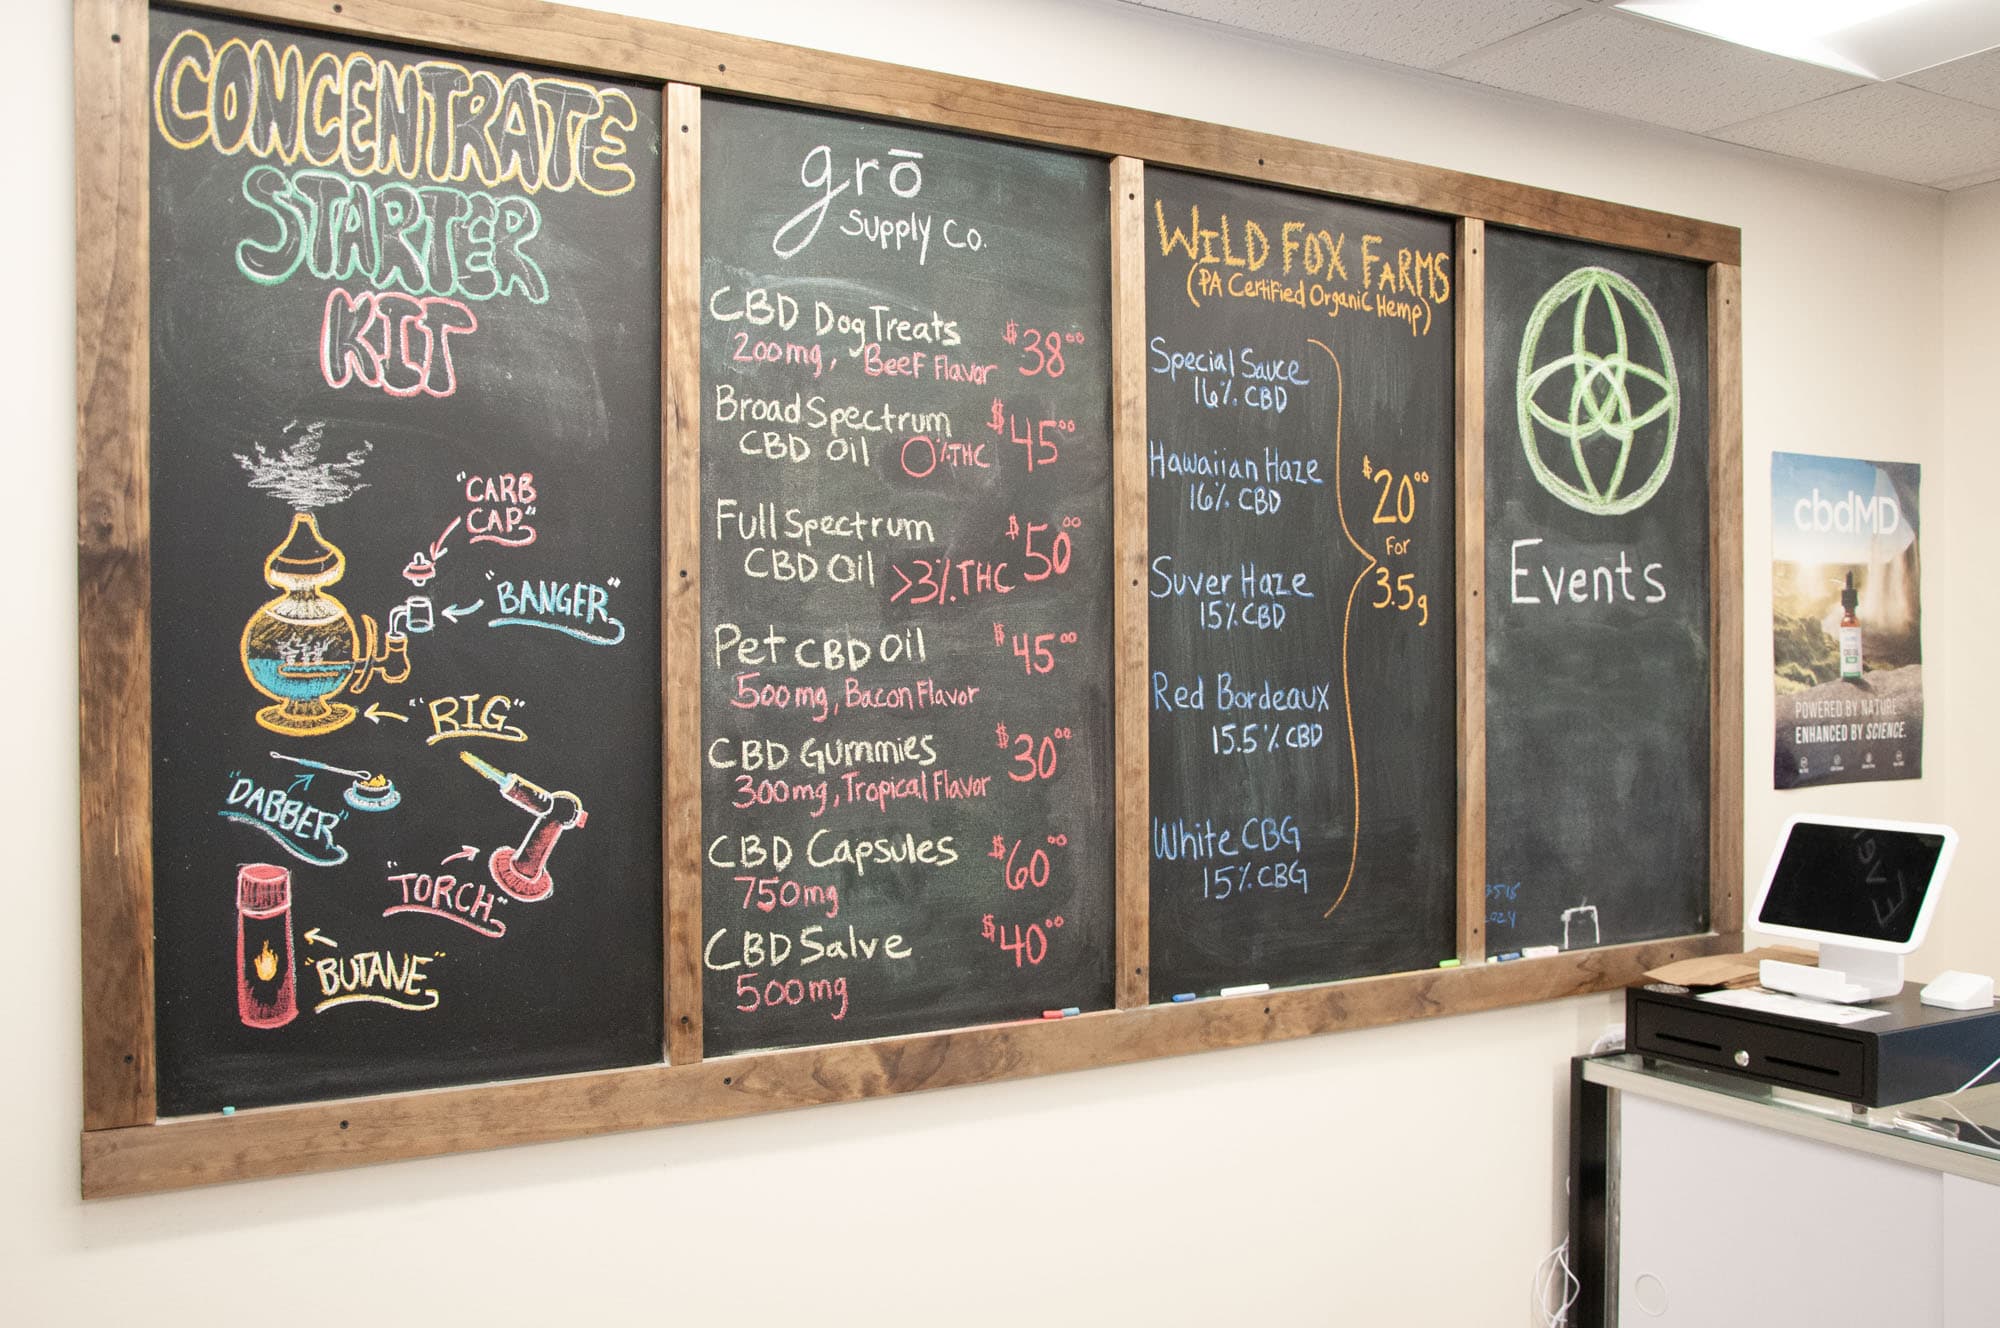 CONCENTRATE
STARTER
KIT
"CARB
CAP"
"BANGER"
"RIG"
"DABBER"
"TORCH"
"BUTANE"
grō
Supply Co.
CBD Dog Treats $38.00
200mg, Beef Flavor
Broad Spectrum $45.00
CBD Oil 0% THC
Full Spectrum $50.00
CBD Oil >3% THC
Pet CBD Oil $45.00
500mg, Bacon Flavor
CBD Gummies $30.00
300mg, Tropical Flavor
CBD Capsules $60.00
750mg
CBD Salve $40.00
500mg
WILD FOX FARMS
(PA Certified Organic Hemp)
Special Sauce
16% CBD
Hawaiian Haze
16% CBD
Suver Haze
15% CBD
Red Bordeaux
15.5% CBD
White CBG
15% CBG
$20.00
For
3.5g
Events
cbdMD
POWERED BY NATURE.
ENHANCED BY SCIENCE.